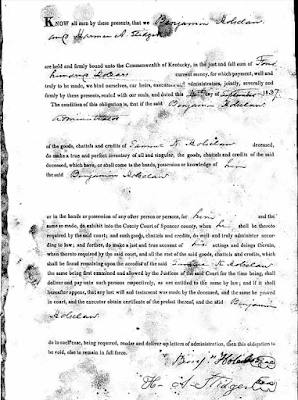 KNOW all men by these presents, that we Benjamin Holsclaw
and Harman A. Stidger
are held and firmly bound unto the Commonwealth of Kentucky, in the just and full sum of Four
hundred Dollars current money, for which payment, well and
truly to be made, we bind ourselves, our heirs, executors administrators, jointly, severally and
firmly by these presents, sealed with our seals, and dated this day of September 1837.
The condition of this obligation is, that if the said Benjamin Holsclaw
Administrator
of the goods, chattels and credits of N. Holsclaw deceased,
do make a true and perfect inventory of all and singular, the goods, chattels and credits of the said
deceased, which have, or shall come to the hands, possession or knowledge of him
the said Benjamin Holsclaw
or in the hands or possession of any other person or persons, for him and the
same so made, do exhibit into the County Court of Spencer county, when he shall be thereto
required by the said court; and such goods, chattels and credits, do well and truly administer accord
ing to law; and further, do make a just and true account of his actings and doings therein,
when thereto required by the said court, and all the rest of the said goods, chattels and credits, which
shall be found remaining upon the account of the said N. Holsclaw
the same being first examined and allowed by the Justices of the said Court for the time being, shall
deliver and pay unto such persons respectively, as are entitled to the same by law; and if it shall
hereafter appear, that any last will and testament was made by the deceased, and the same be proved
in court, and the executor obtain certificate of the probat thereof, and the said Benjamin
Holsclaw
do in such case, being required, render and deliver up letters of administration, then this obligation to
be void, else to remain in full force.
Benj Holsclaw
H. A. Stidger